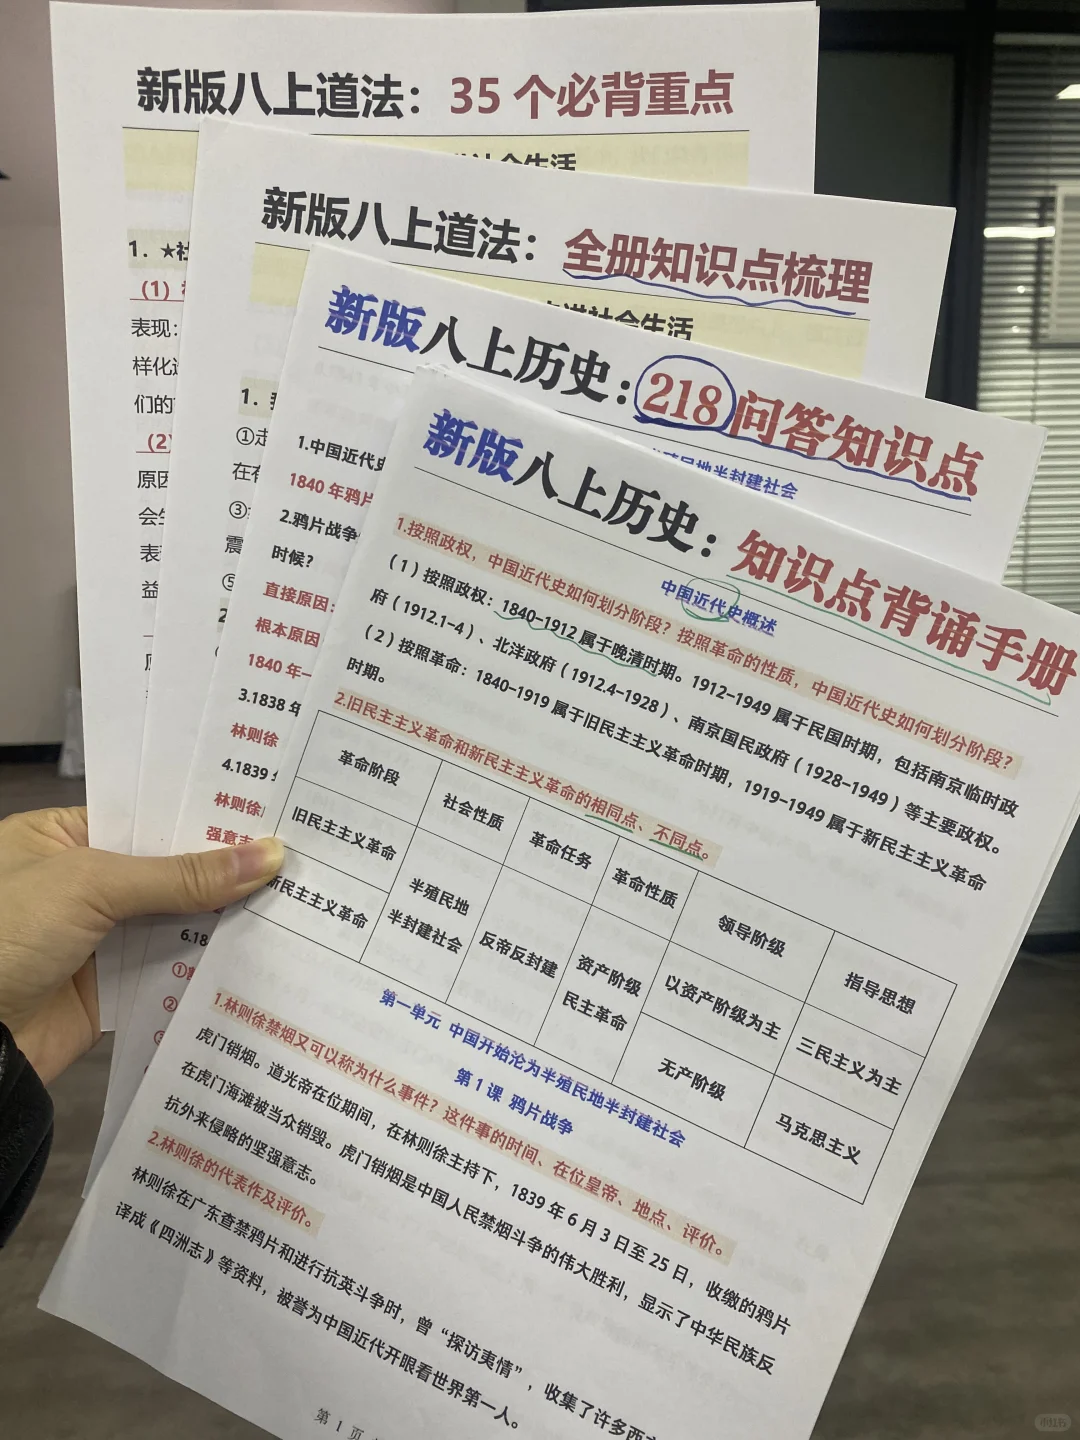 新版八上道法：35个必背重点
社会生活
1.★社
（1）
表现：
样化
们的
（2）
原因
会
表
益
新版八上道法：全册知识点梳理
进社会生活
1.
①走
在
③
震
⑤
2
新版八上历史：218问答知识点
民地半封建社会
1.中国近代史
1840年鸦片
2.鸦片战争
时候？
直接原因：
根本原因
1840年
3.1838年
林则徐
4.1839
林则徐
强意志
6.18
①
②
新版八上历史：知识点背诵手册
中国近代史概述
1.按照政权，中国近代史如何划分阶段？按照革命的性质，中国近代史如何划分阶段？
（1）按照政权：1840-1912属于晚清时期。1912-1949属于民国时期，包括南京临时政
府（1912.1-4）、北洋政府（1912.4-1928）、南京国民政府（1928-1949）等主要政权。
（2）按照革命：1840-1919属于旧民主主义革命时期，1919-1949属于新民主主义革命
时期。
2.旧民主主义革命和新民主主义革命的相同点、不同点。
革命阶段 社会性质 革命任务 革命性质 领导阶级 指导思想
旧民主主义革命 半殖民地半封建社会 反帝反封建 资产阶级民主革命 以资产阶级为主 三民主义为主
新民主主义革命 无产阶级 马克思主义
第一单元 中国开始沦为半殖民地半封建社会
第1课 鸦片战争
1.林则徐禁烟又可以称为什么事件？这件事的时间、在位皇帝、地点、评价。
虎门销烟。道光帝在位期间，在林则徐主持下，1839年6月3日至25日，收缴的鸦片
在虎门海滩被当众销毁。虎门销烟是中国人民禁烟斗争的伟大胜利，显示了中华民族反
抗外来侵略的坚强意志。
2.林则徐的代表作及评价。
林则徐在广东查禁鸦片和进行抗英斗争时，曾“探访夷情”，收集了许多西
译成《四洲志》等资料，被誉为中国近代开眼看世界第一人。
第 1 页
小红书